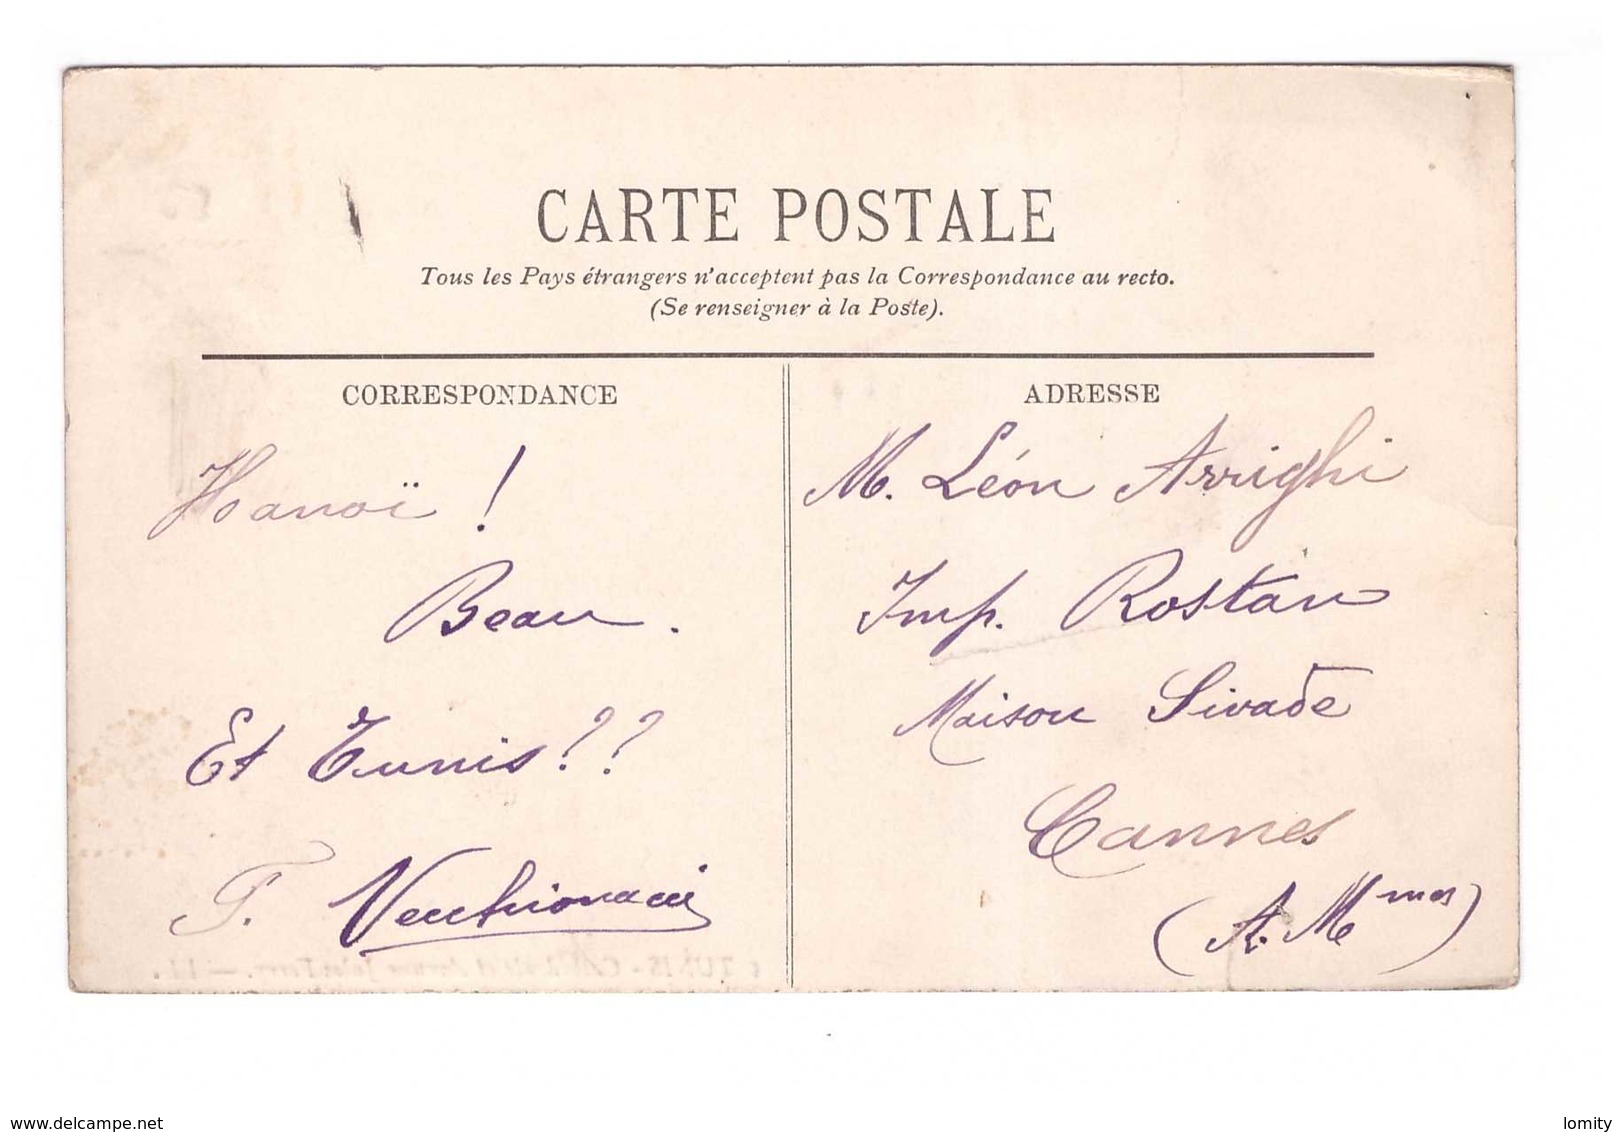 CARTE POSTALE
Tous les Pays étrangers n'acceptent pas la Correspondance au recto.
(Se renseigner à la Poste).
CORRESPONDANCE
Hanoï !
Beau.
Et Tunis ??
F.
ADRESSE
M. Léon Arrighi
Imp. Rostan
Maison Sivade
Cannes
(A. Mmes)
delcampe.net
lomity